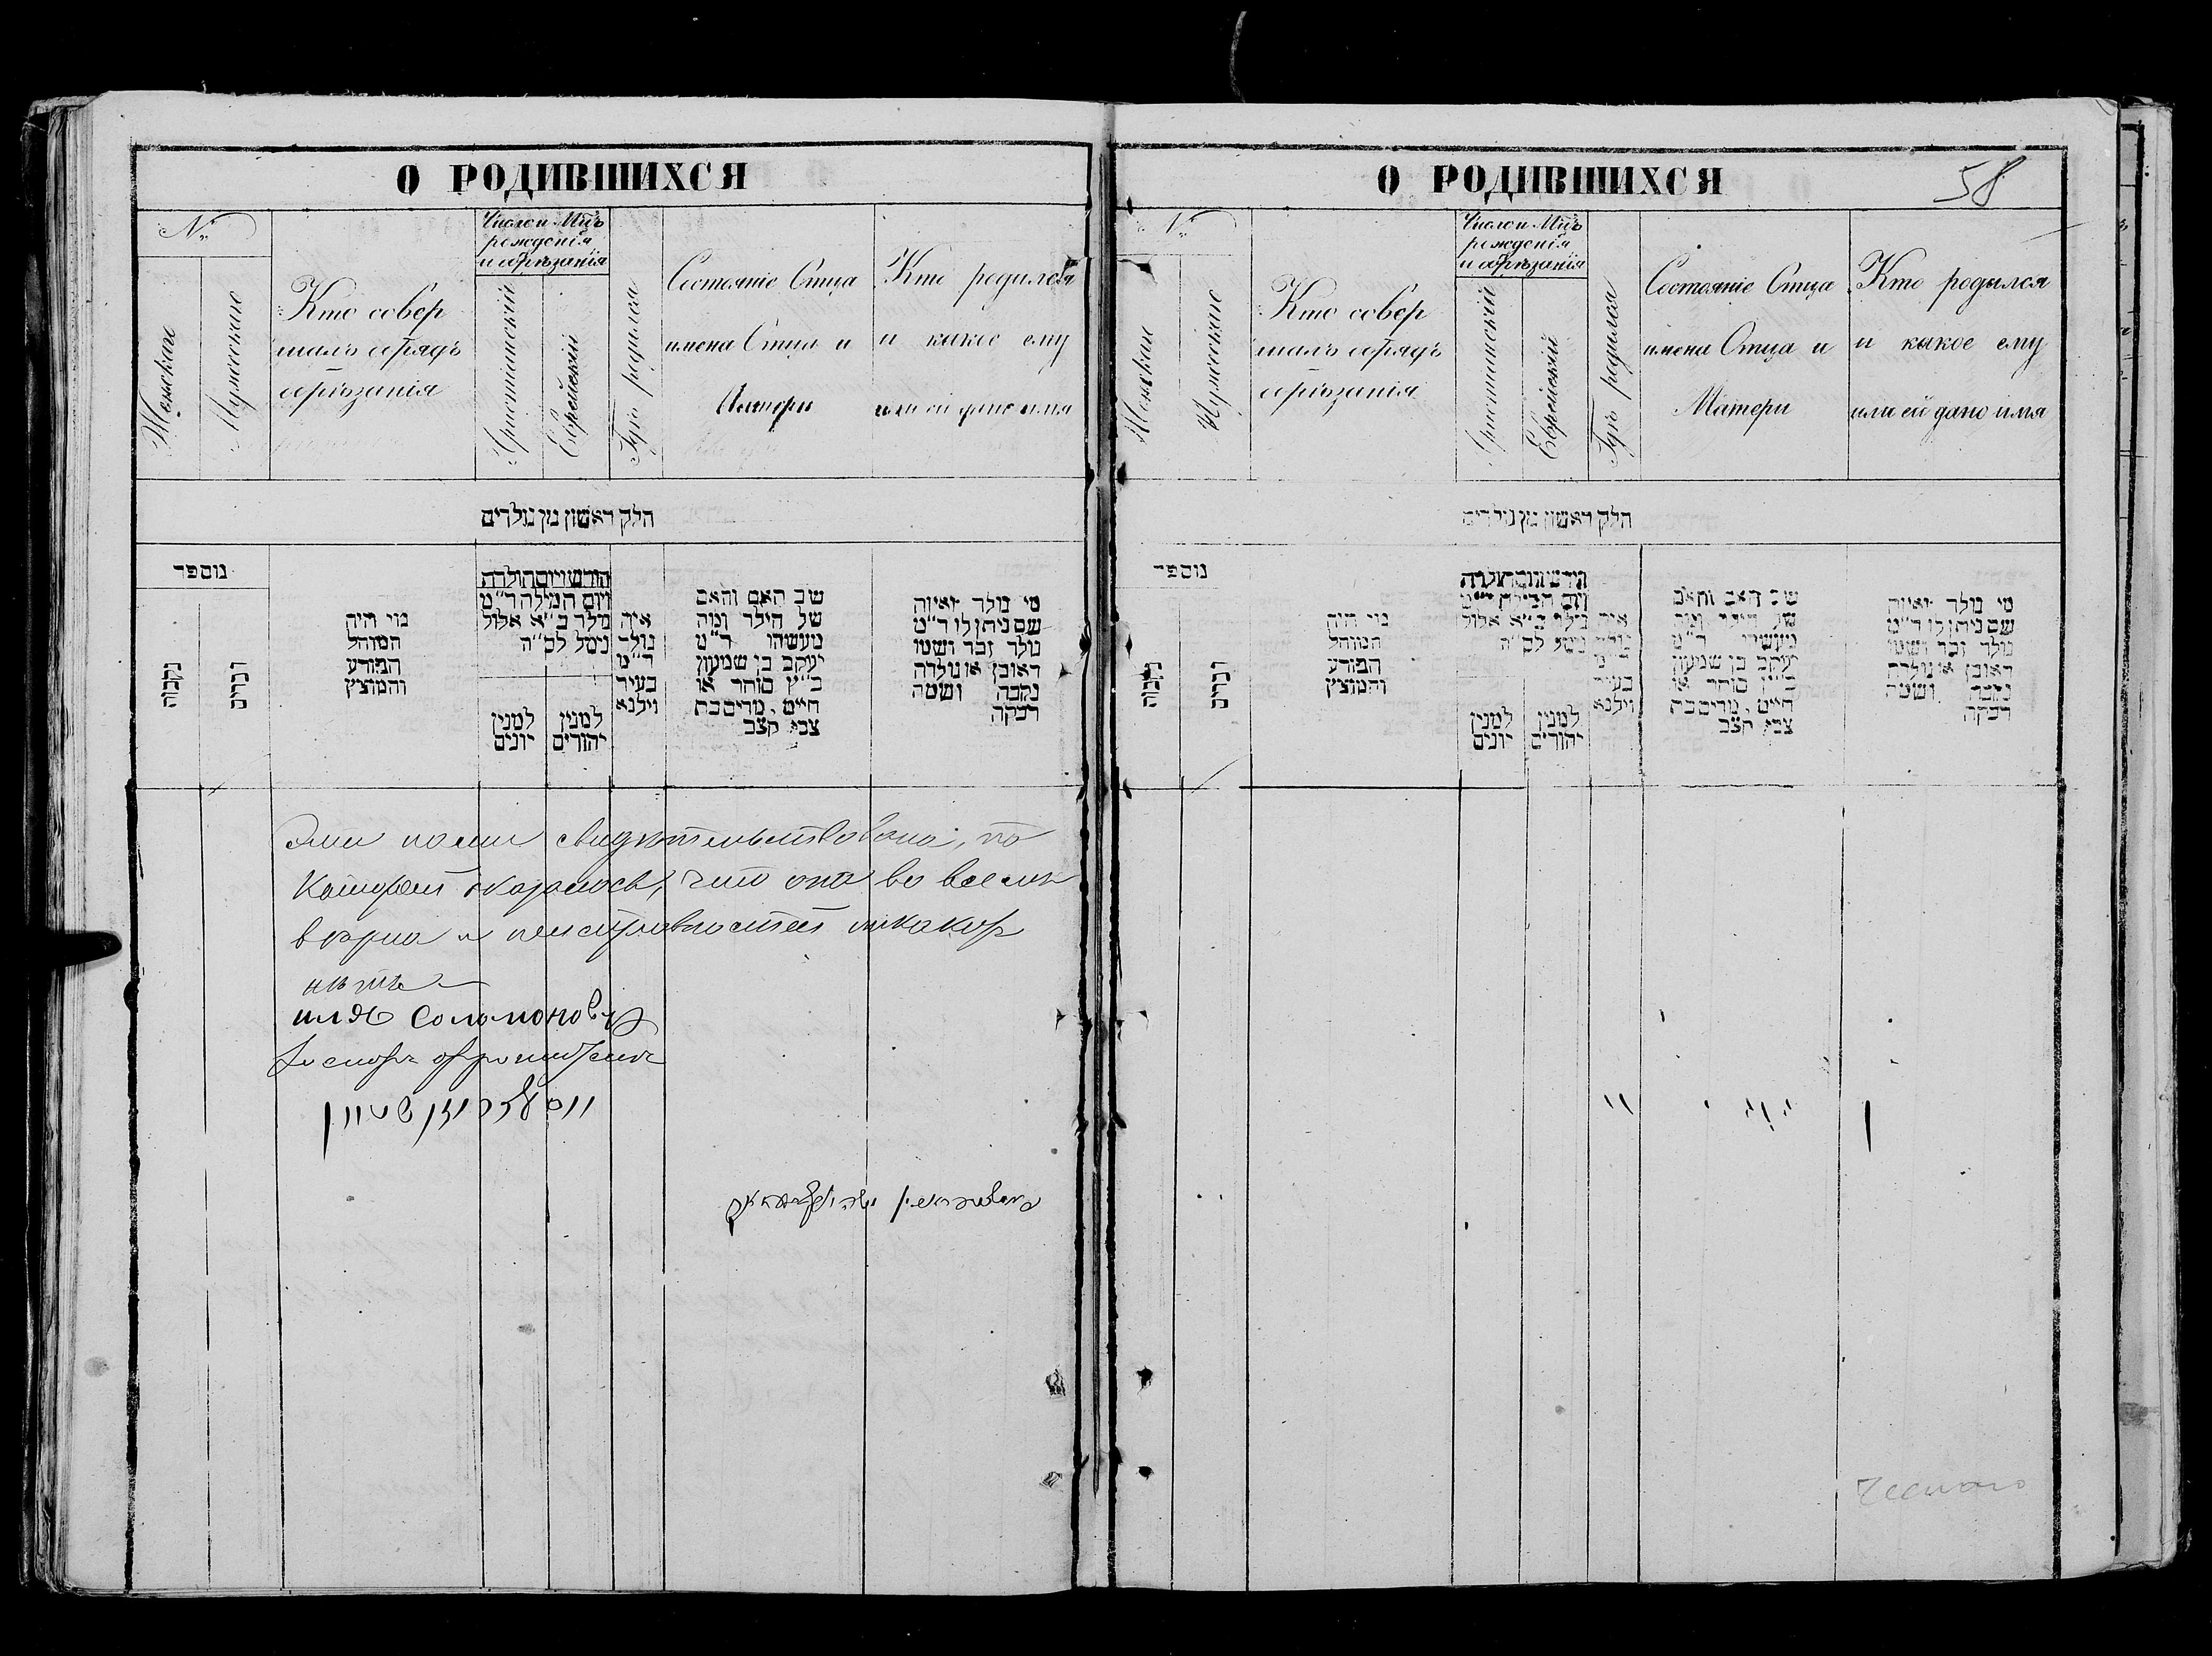 О РОДИВШИХСЯ
№
Женскаго
Мужескаго
Кто совер
шалъ обрядъ
обрѣзанія
Число и Мцъ
рожденія
и обрѣзанія
Христіанскій
Еврейскій
Гдѣ родился
Состояніе Отца
имена Отца и
Матери
Кто родился
и какое ему
или ей дано имя
חלק ראשון מן נולדים
מספר
נקבות
זכרים
מי היה
המוהל
הפורע
והמוצץ
חודש ויום הולדת
ויום המילה ד"מ
נולד ב"א אלול
נימל לס"ה
למנין
יונים
למנין
יהודים
איה
נולד
ד"מ
בעיר
ווילנא
שב האב והאם
של הילד ומה
מעשהו ד"מ
יעקב בן שמעון
כ"ץ סוחר או
חיים, מרים בת
צבי קצב
מי נולד ואיזה
שם ניתן לו ד"מ
נולד זכר ושמו
ראובן או נולדה
נקבה ושמה
רבקה
свидѣтельствована, по
которой оказалось, что она во всемъ
вѣрна и неисправностей
нѣтъ
О РОДИВШИХСЯ
58
№
Женскаго
Мужескаго
Кто совер
шалъ обрядъ
обрѣзанія
Число и Мцъ
рожденія
и обрѣзанія
Христіанскій
Еврейскій
Гдѣ родился
Состояніе Отца
имена Отца и
Матери
Кто родился
и какое ему
или ей дано имя
חלק ראשון מן נולדים
מספר
נקבות
זכרים
מי היה
המוהל
הפורע
והמוצץ
חודש ויום הולדת
ויום המילה ד"מ
נולד ב"א אלול
נימל לס"ה
למנין
יונים
למנין
יהודים
איה
נולד
ד"מ
בעיר
ווילנא
שב האב והאם
של הילד ומה
מעשהו ד"מ
יעקב בן שמעון
כ"ץ סוחר או
חיים, מרים בת
צבי קצב
מי נולד ואיזה
שם ניתן לו ד"מ
נולד זכר ושמו
ראובן או נולדה
נקבה ושמה
רבקה